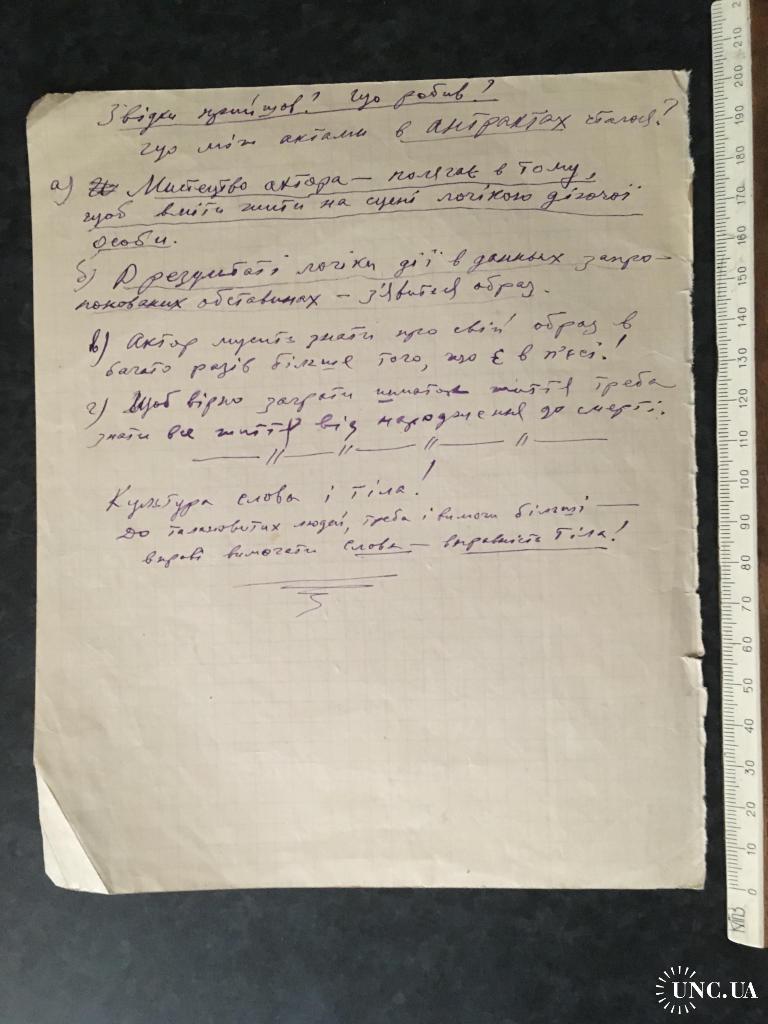 Звідки прийшов? Що робив?
Що між актами в антрактах сталося?
а) Мистецтво актора — полягає в тому,
щоб вміти жити на сцені логікою діючої
особи.
б) В результаті логіки дії в данных запро-
понованих обставинах — з'явиться образ.
в) Актор мусить знати про свій образ в
багато разів більше того, що є в п'єсі!
г) Щоб вірно заграти шматок життя треба
знати все життя від народження до смерті.
— // — // — // — // —
Культура слова і тіла!
До талановитих людей, треба і вимоги більші —
вправі вимагати слова — вправність тіла!
210
200
190
180
170
160
150
140
130
120
110
100
90
80
70
60
50
40
30
20
10
0
UNC.UA